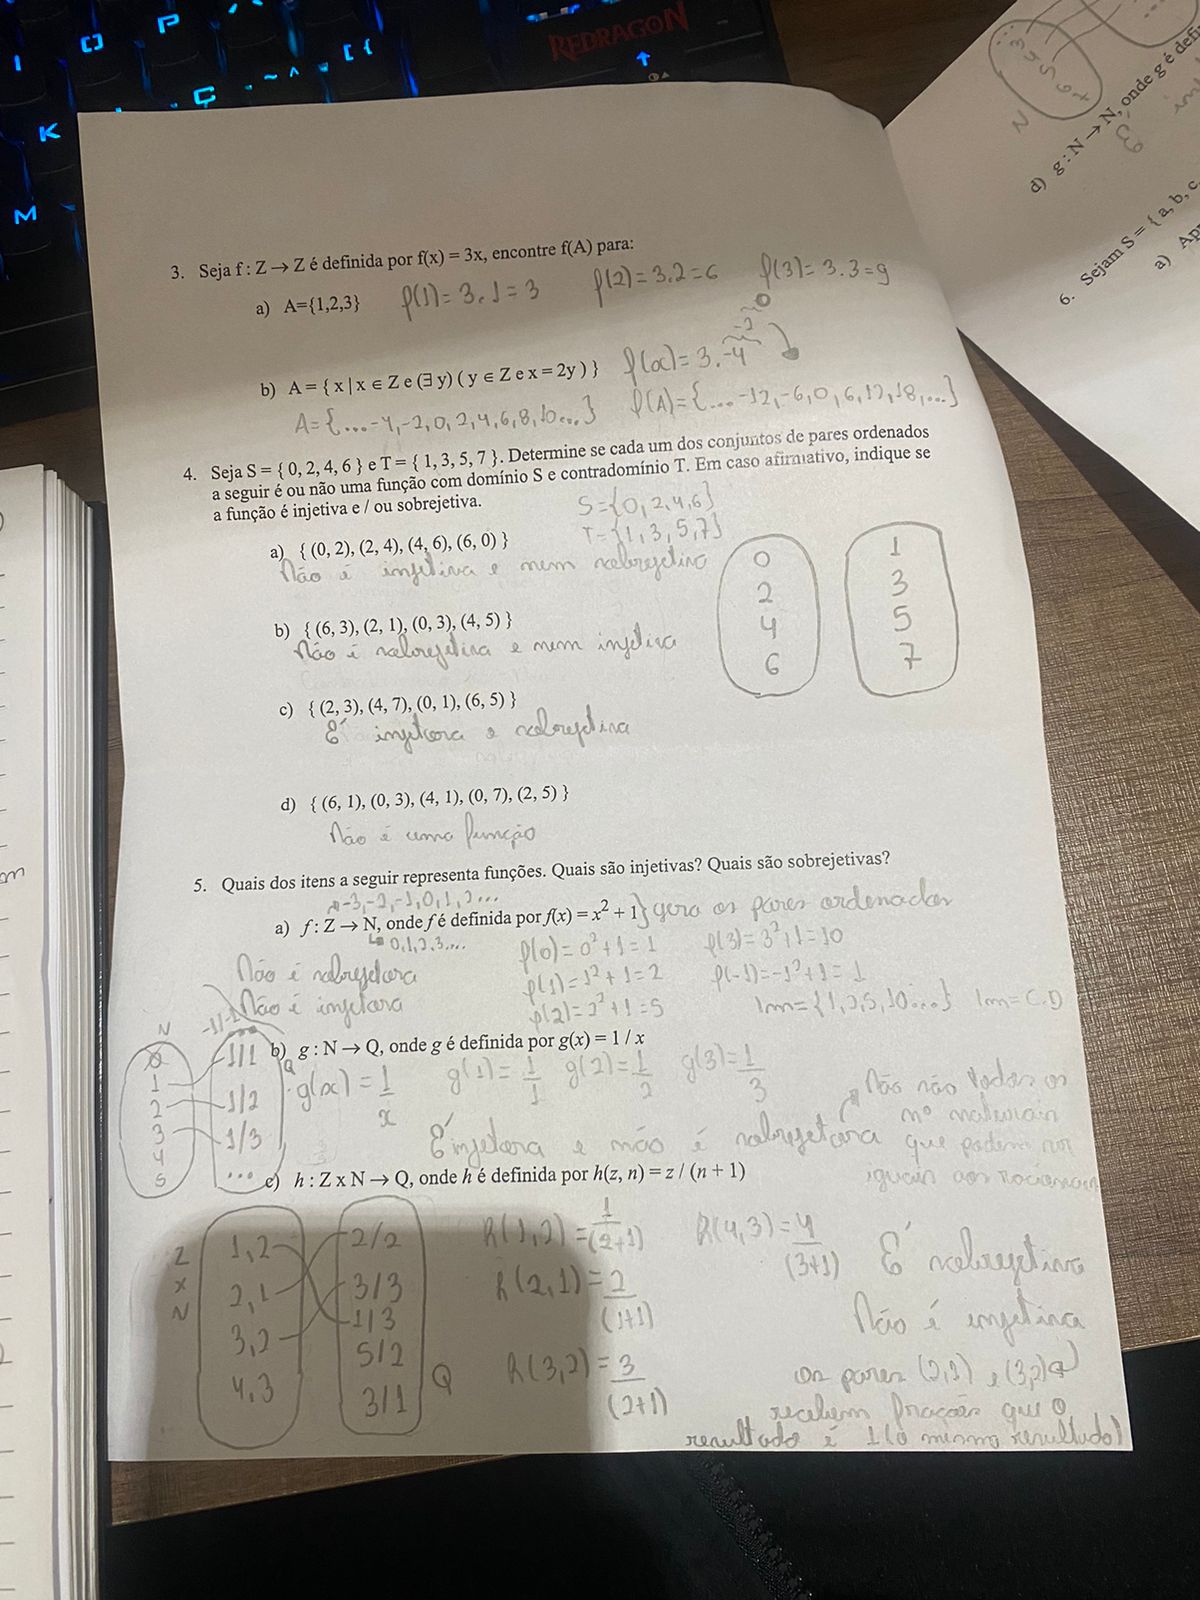 REDRAGON
P
Ç
K
M
3. Seja f : Z → Z é definida por f(x) = 3x, encontre f(A) para:
a) A={1,2,3} f(1)= 3.1=3 f(2)=3.2=6 f(3)=3.3=9
b) A = { x | x ∈ Z e (∃ y) ( y ∈ Z e x = 2y ) } f(x)=3.-4 -2 0
A={...-4,-2,0,2,4,6,8,10...} f(A)={...-12,-6,0,6,12,18,...}
4. Seja S = { 0, 2, 4, 6 } e T = { 1, 3, 5, 7 }. Determine se cada um dos conjuntos de pares ordenados
a seguir é ou não uma função com domínio S e contradomínio T. Em caso afirmativo, indique se
a função é injetiva e / ou sobrejetiva.
S={0,2,4,6}
T={1,3,5,7}
a) { (0, 2), (2, 4), (4, 6), (6, 0) }
Não é injetiva e nem sobrejetiva
0 1
2 3
4 5
6 7
b) { (6, 3), (2, 1), (0, 3), (4, 5) }
Não é sobrejetiva e nem injetiva
c) { (2, 3), (4, 7), (0, 1), (6, 5) }
É injetora e sobrejetiva
d) { (6, 1), (0, 3), (4, 1), (0, 7), (2, 5) }
Não é uma função
5. Quais dos itens a seguir representa funções. Quais são injetivas? Quais são sobrejetivas?
-3,-2,-1,0,1,2...
a) f : Z → N, onde f é definida por f(x) = x² + 1} gera os pares ordenados
0,1,2,3,...
f(0)=0²+1=1 f(3)=3²+1=10
Não é sobrejetora
f(1)=1²+1=2 f(-1)=-1²+1=1
Não é injetora
f(2)=2²+1=5 Im={1,2,5,10...} Im=C.D
b) g : N → Q, onde g é definida por g(x) = 1 / x
N Q
0 1/1
1 1/2
2 1/3
3 ...
4
5
g(x)=1/x g(1)=1/1 g(2)=1/2 g(3)=1/3
É injetora e não é sobrejetora
Não são todos os
nº naturais
que podem ser
iguais aos racionais
c) h : Z x N → Q, onde h é definida por h(z, n) = z / (n + 1)
Z x N
1,2 2/2
2,1 3/3
3,2 1/3
4,3 5/2
3/1 Q
h(1,2)=1/(2+1) h(4,3)=4/(3+1)
h(2,1)=2/(1+1)
h(3,2)=3/(2+1)
É sobrejetiva
Não é injetiva
os pares (2,1) e (3,2)
recebem frações que o
resultado é 1 (o mesmo resultado)
N
d) g : N → N, onde g é defi
6. Sejam S = { a, b, c
a)